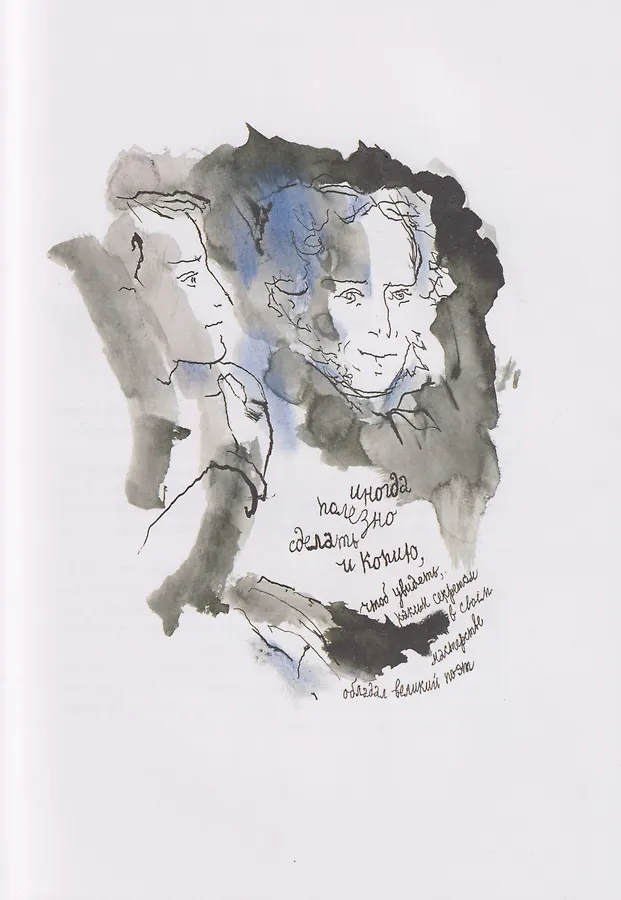 иногда
полезно
сделать
и копию,
чтоб увидеть,
каким секретом
в своём
мастерстве
обладал великий поэт